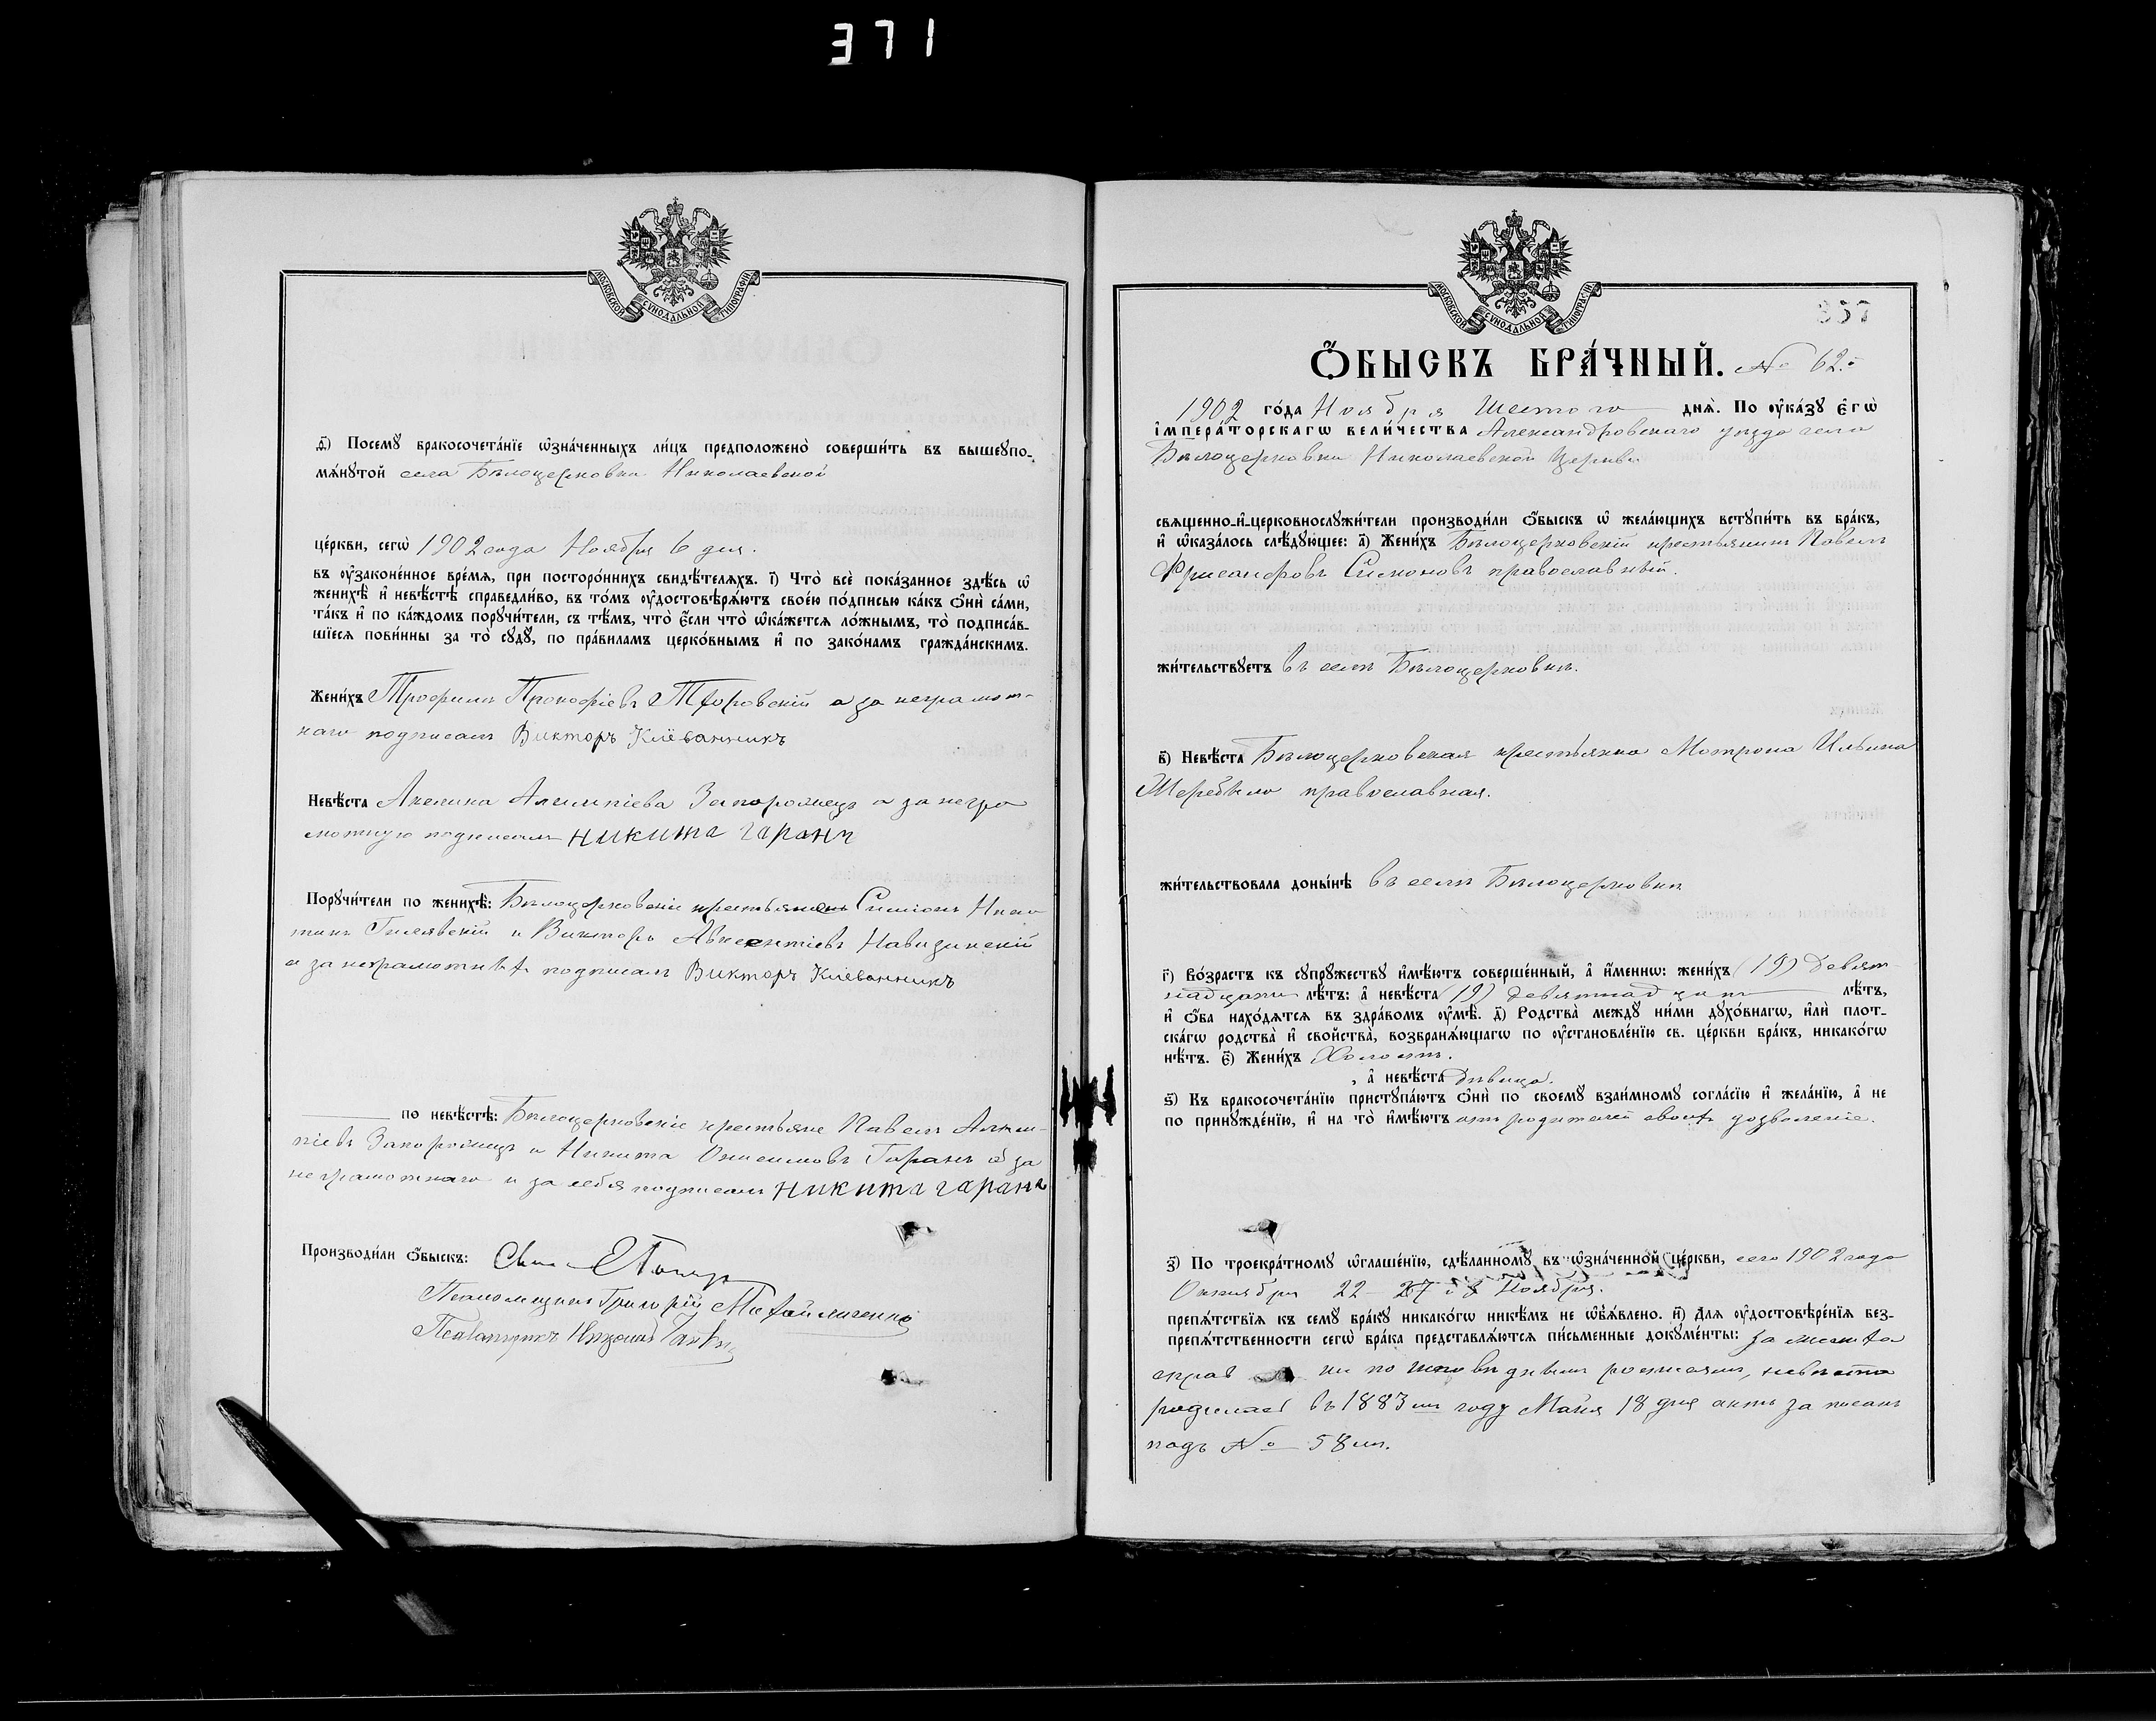 371
МОСКОВСКОЙ СѴНОДАЛЬНОЙ ТИПОГРАФІИ
д҃) Посемꙋ̀ бракосочета́нїе ѡ҆зна́ченныхъ ли́цъ предположено̀ соверши́ть въ вышеꙋпо-
мѧ́нꙋтой села Бѣлоцерковки Николаевской
це́ркви, сегѡ̀ 1902 года Ноября 6 дня.
въ ᲂу҆зако́ненное вре́мѧ, при посторо́ннихъ свидѣ́телѧхъ. і҃) Что̀ всѐ пока́занное здѣ́сь ѡ҆
женихѣ̀ и҆ невѣ́стѣ справедли́во, въ то́мъ ᲂу҆достовѣрѧ́ютъ свое́ю по́дписью ка́къ ѻ҆нѝ са́ми,
та́къ и҆ по ка́ждомъ порꙋчи́тели, съ тѣ́мъ, что̀ є҆́сли что̀ ѡ҆ка́жетсѧ ло́жнымъ, то̀ подписа́в-
шїесѧ пови́нны за то̀ сꙋдꙋ̀, по пра́виламъ церко́внымъ и҆ по зако́намъ гражда́нскимъ.
Жени́хъ Трофимъ Прокофіевъ а за неграмот-
наго подписалъ Викторъ Кіёванникъ
Невѣ́ста Акелина Алимпіева Запорожецъ а за негра
мотную подписалъ Никита гаранъ
Порꙋчи́тели по женихѣ̀: Бѣлоцерковскіе крестьяне Симіонъ
и Викторъ Авксентіевъ
а за неграмотныхъ подписалъ Викторъ Кіёванникъ
по невѣ́стѣ: Бѣлоцерковскіе крестьяне Павелъ Алим-
піевъ Запорожецъ и Никита Онисимовъ Гаранъ а за
неграмотнаго и за себя подписалъ Никита гаранъ
Производи́ли ѻ҆́быскъ: Свящ.
Псаломщикъ Григорій
Псаломщикъ
МОСКОВСКОЙ СѴНОДАЛЬНОЙ ТИПОГРАФІИ
Ѻ҆́БЫСКЪ БРА́ЧНЫЙ. № 62.
1902 го́да Ноября шестого днѧ̀. По ᲂу҆ка́зꙋ є҆гѡ̀
і҆мпера́торскагѡ вели́чества Александровскаго уѣзда села
Бѣлоцерковки Николаевской Церкви
свѧщенно-и҆-церковнослꙋжи́тели производи́ли ѻ҆́быскъ ѡ҆ жела́ющихъ встꙋпи́ть въ бра́къ,
и҆ ѡ҆каза́лось слѣ́дꙋющее: а҃) Жени́хъ Бѣлоцерковскій крестьянинъ Павелъ
Симоновъ православный.
жи́тельствꙋетъ въ селѣ Бѣлоцерковкѣ.
в҃) Невѣ́ста Бѣлоцерковская крестьянка Мотрона Ильина
Шеребило православная.
жи́тельствовала доны́нѣ въ селѣ Бѣлоцерковкѣ
г҃) Во́зрастъ къ сꙋпрꙋ́жествꙋ и҆мѣ́ютъ соверше́нный, а҆ и҆́меннѡ: жени́хъ (19) девят-
надцати лѣ́тъ: а҆ невѣ́ста (19) девятнадцати лѣ́тъ,
и҆ ѻ҆́ба нахо́дѧтсѧ въ здра́вомъ ᲂу҆мѣ̀. д҃) Родства̀ междꙋ̀ ни́ми дꙋхо́внагѡ, и҆лѝ плот-
ска́гѡ родства̀ и҆ сво́йства̀, возбранѧ́ющагѡ по ᲂу҆становле́нїю св. це́ркви бра́къ, никако́гѡ
нѣ́тъ. є҃) Жени́хъ Холостъ.
, а҆ невѣ́ста дѣвица.
ѕ҃) Къ бракосочета́нїю пристꙋпа́ютъ ѻ҆нѝ по своемꙋ̀ взаи́мномꙋ согла́сїю и҆ жела́нїю, а҆ не
по принꙋжде́нїю, и҆ на то̀ и҆мѣ́ютъ отъ родителей своихъ дозволеніе.
з҃) По троекра́тномꙋ ѡ҆глаше́нїю, сдѣ́ланномꙋ въ ѡ҆зна́ченной це́ркви, сего 1902 года
Октября 22 - 27 и Ноября.
препѧ́тствїѧ къ семꙋ̀ бра́кꙋ никако́гѡ никѣ́мъ не ѡ҆б̾ѧ́влено. и҃) Длѧ ᲂу҆достовѣре́нїѧ без-
препѧ́тственности сегѡ̀ бра́ка представлѧ́ютсѧ пи́сьменные докꙋме́нты:
по исповѣднымъ росписямъ, невѣста
родилась въ 1883 мъ году Мая 18 дня актъ записанъ
подъ № 58 мъ.